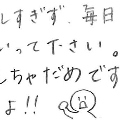 しすぎず、毎日
いって下さい。
しちゃだめです
よ!!